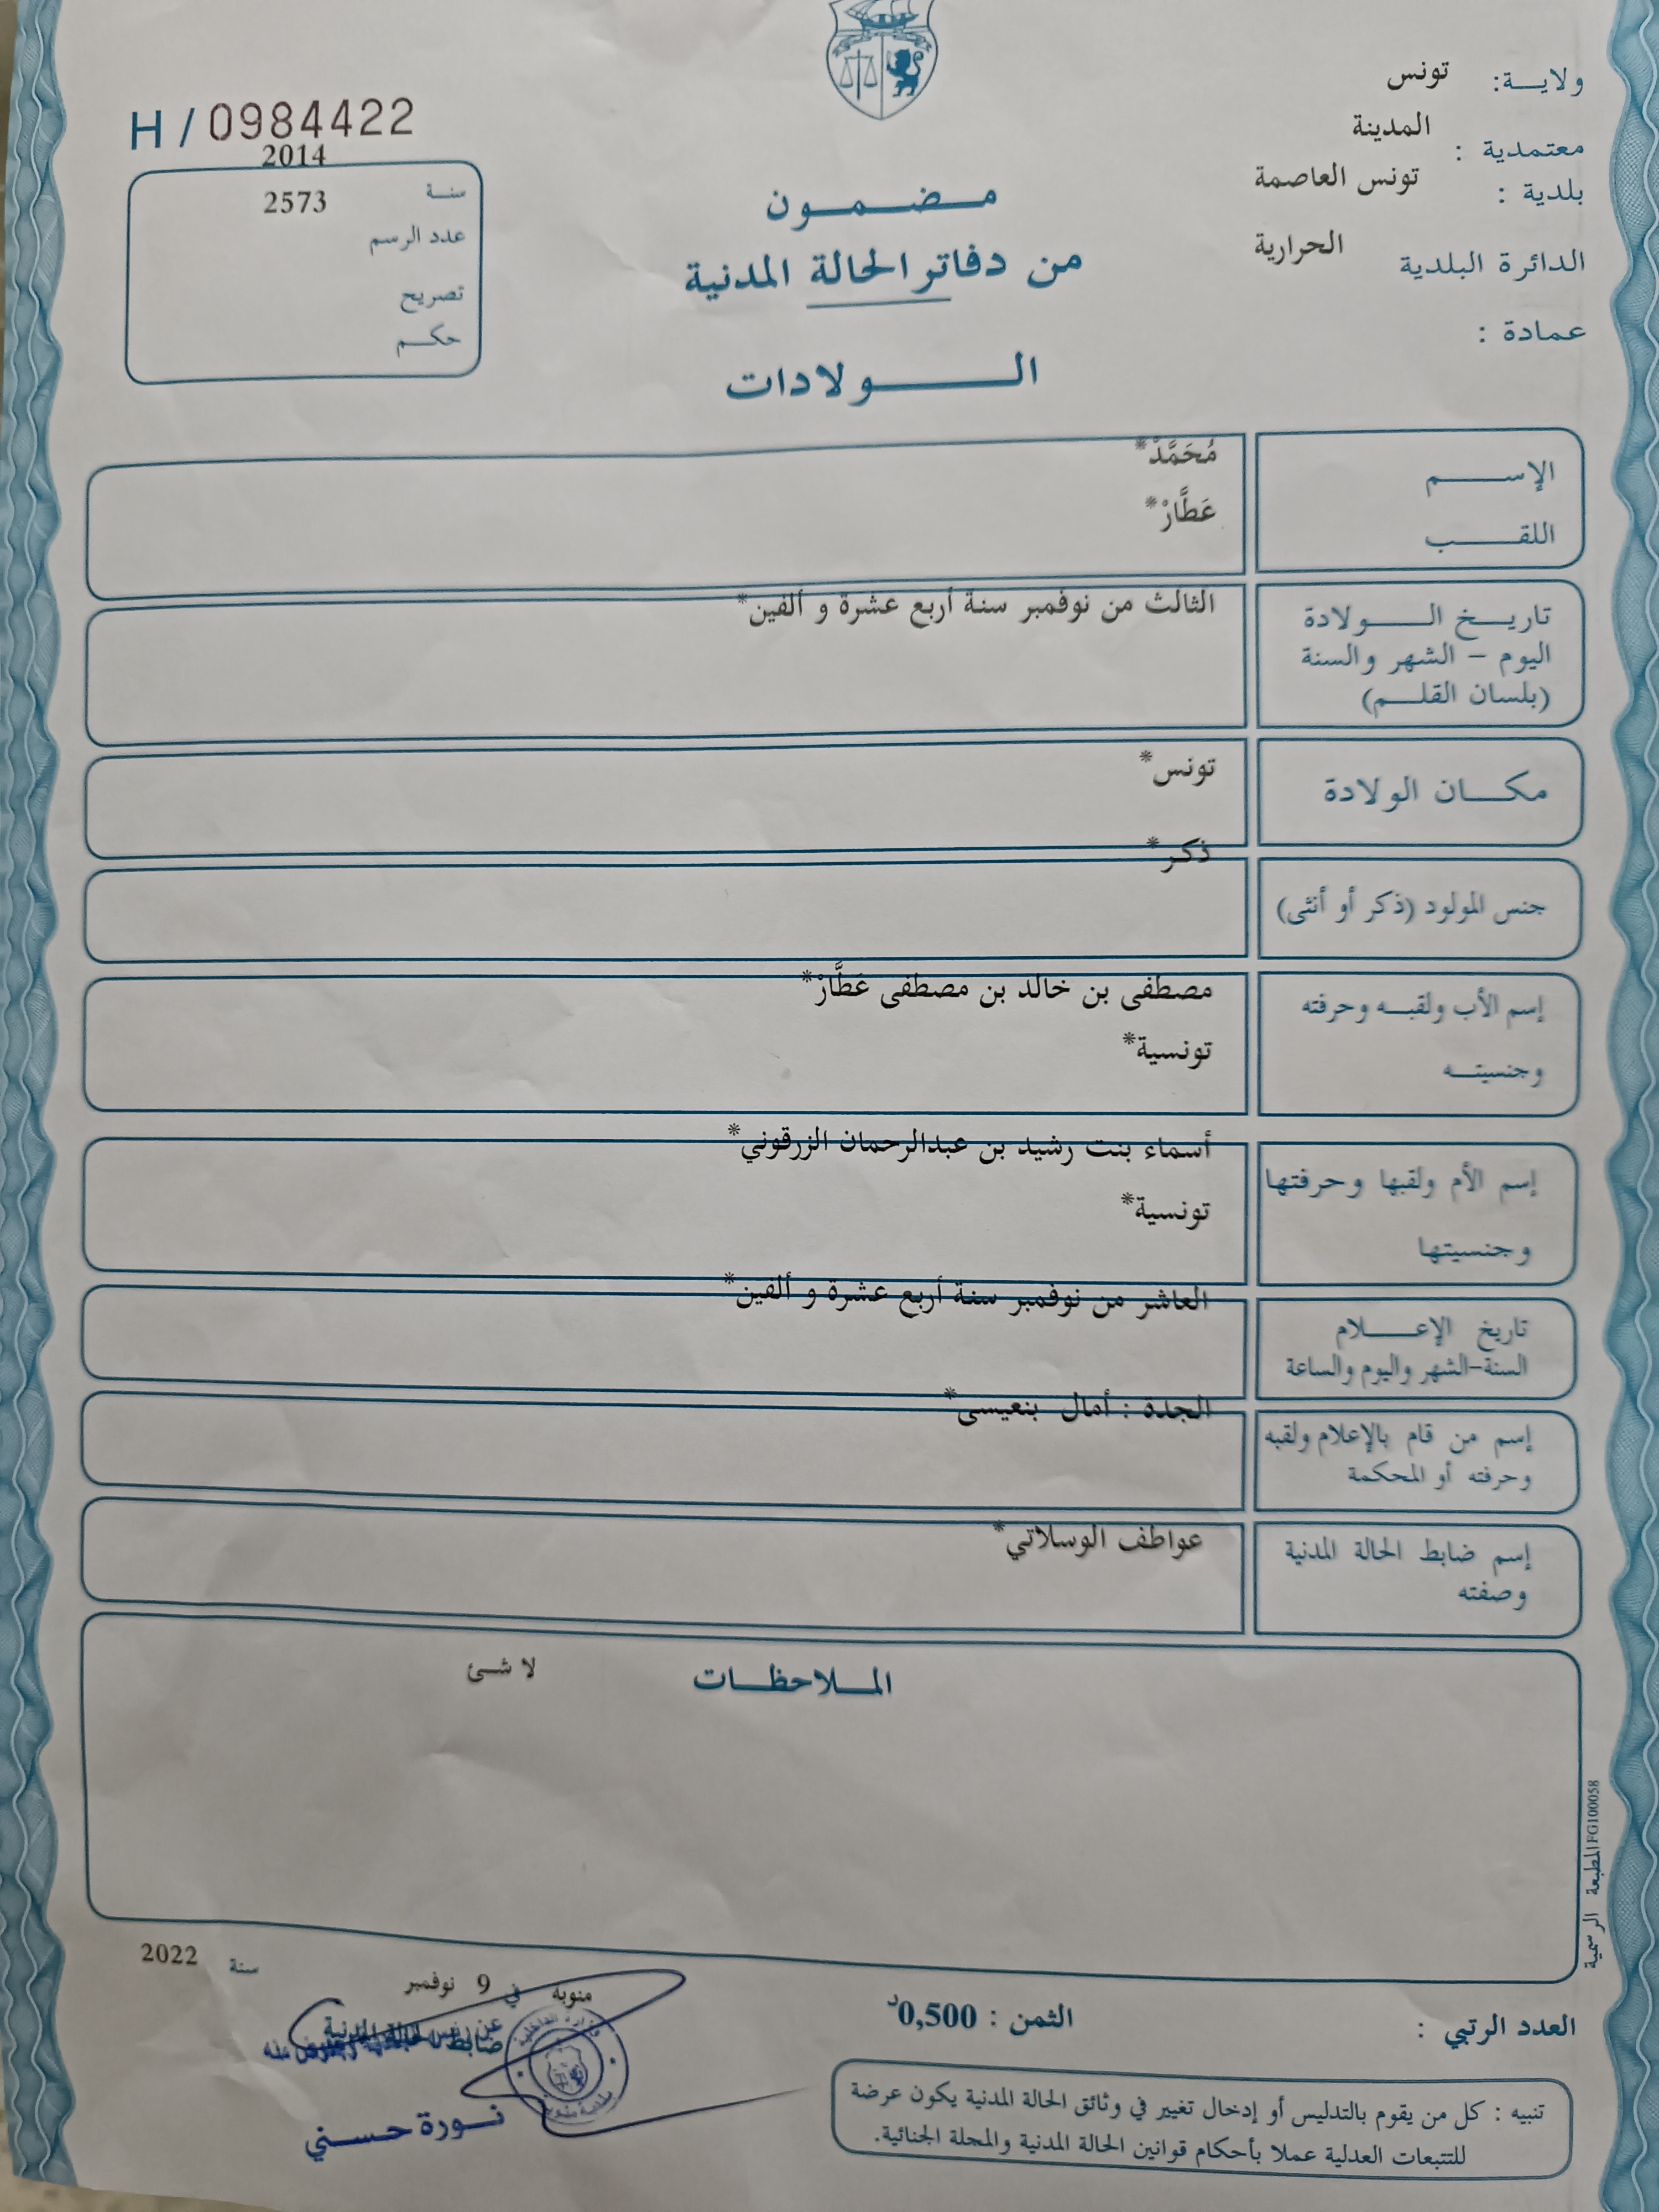 ولاية: تونس
معتمدية : المدينة
بلدية : تونس العاصمة
الدائرة البلدية الحرارية
عمادة :
H / 0984422
سنة 2014
عدد الرسم 2573
تصريح
حكم
مضمون
من دفاتر الحالة المدنية
الولادات
الإسم مُحَمَّدْ*
اللقب عَطَّارْ*
تاريخ الولادة
اليوم – الشهر والسنة
(بلسان القلم)
الثالث من نوفمبر سنة أربع عشرة و ألفين*
مكان الولادة
تونس*
جنس المولود (ذكر أو أنثى)
ذكر*
إسم الأب ولقبه وحرفته
وجنسيته
مصطفى بن خالد بن مصطفى عَطَّارْ*
تونسية*
إسم الأم ولقبها وحرفتها
وجنسيتها
أسماء بنت رشيد بن عبدالرحمان الزرقوني*
تونسية*
تاريخ الإعلام
السنة-الشهر واليوم والساعة
العاشر من نوفمبر سنة أربع عشرة و ألفين*
إسم من قام بالإعلام ولقبه
وحرفته أو المحكمة
الجدة : أمال بنعيسى*
إسم ضابط الحالة المدنية
وصفته
عواطف الوسلاتي*
الملاحظات لا شئ
المطبعة الرسمية FG100058
منوبة في 9 نوفمبر سنة 2022
العدد الرتبي :
الثمن : 0,500د
ضابط الحالة المدنية
نورة حسني
وزارة الداخلية
تنبيه : كل من يقوم بالتدليس أو إدخال تغيير في وثائق الحالة المدنية يكون عرضة
للتتبعات العدلية عملا بأحكام قوانين الحالة المدنية والمجلة الجنائية.